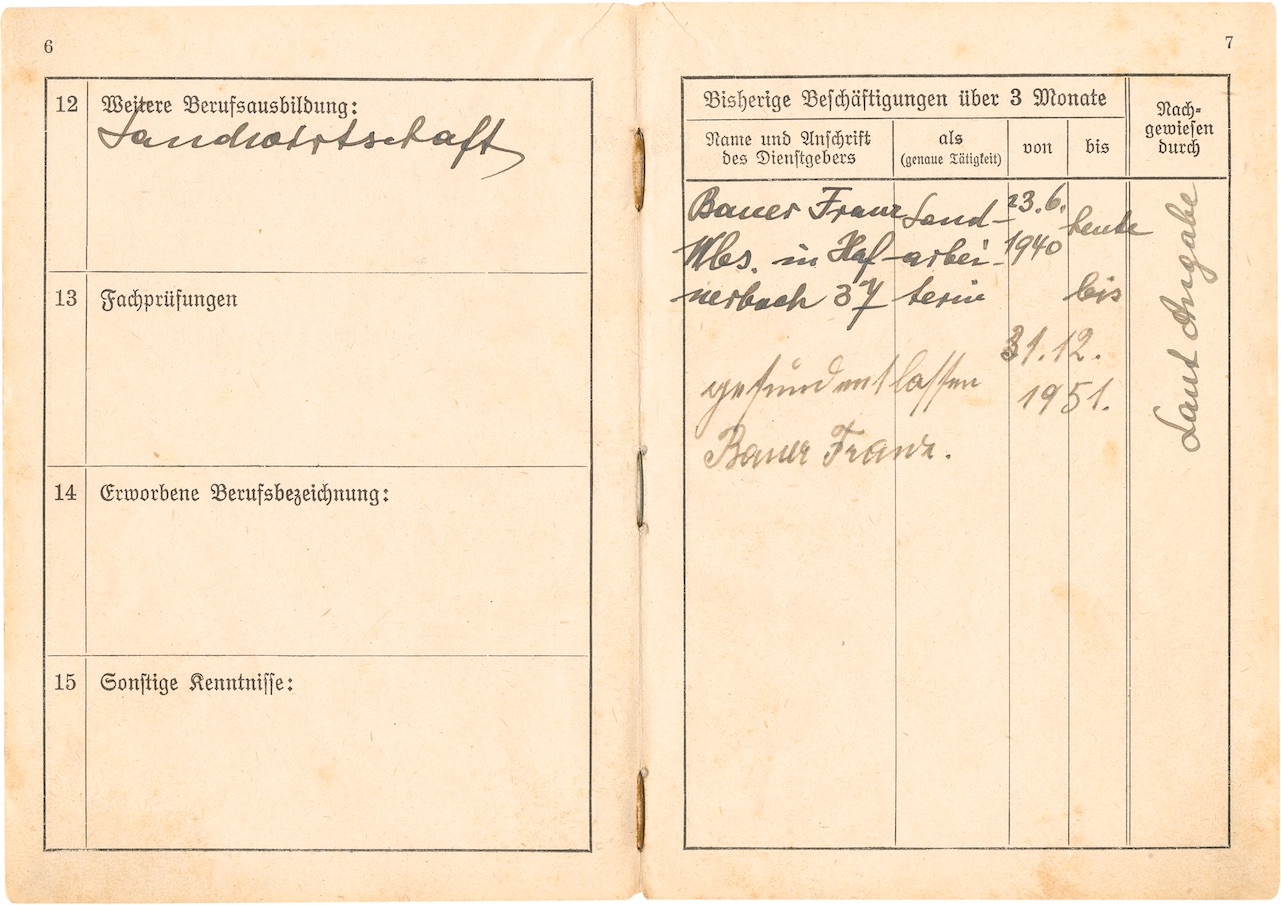 6
12 Weitere Berufsausbildung:
Landwirtschaft
13 Fachprüfungen
14 Erworbene Berufsbezeichnung:
15 Sonstige Kenntnisse:
7
Bisherige Beschäftigungen über 3 Monate
Nach-
gewiesen
durch
Name und Anschrift
des Dienstgebers
als
(genaue Tätigkeit)
von
bis
Bauer Franz Land- 23.6. heute
Wbs. in Haf- arbei- 1940
nerbach 37 terin bis
31.12.
gesund entlassen 1951.
Bauer Franz.
Laut Angabe